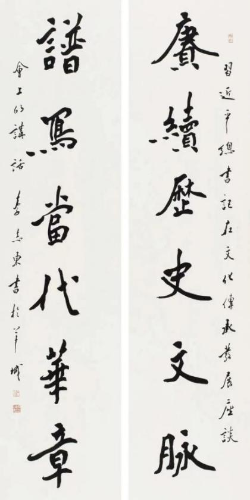 賡續歷史文脈
習近平總書記在文化傳承發展座談
譜寫當代華章
會上的講話 李志東書於羊城